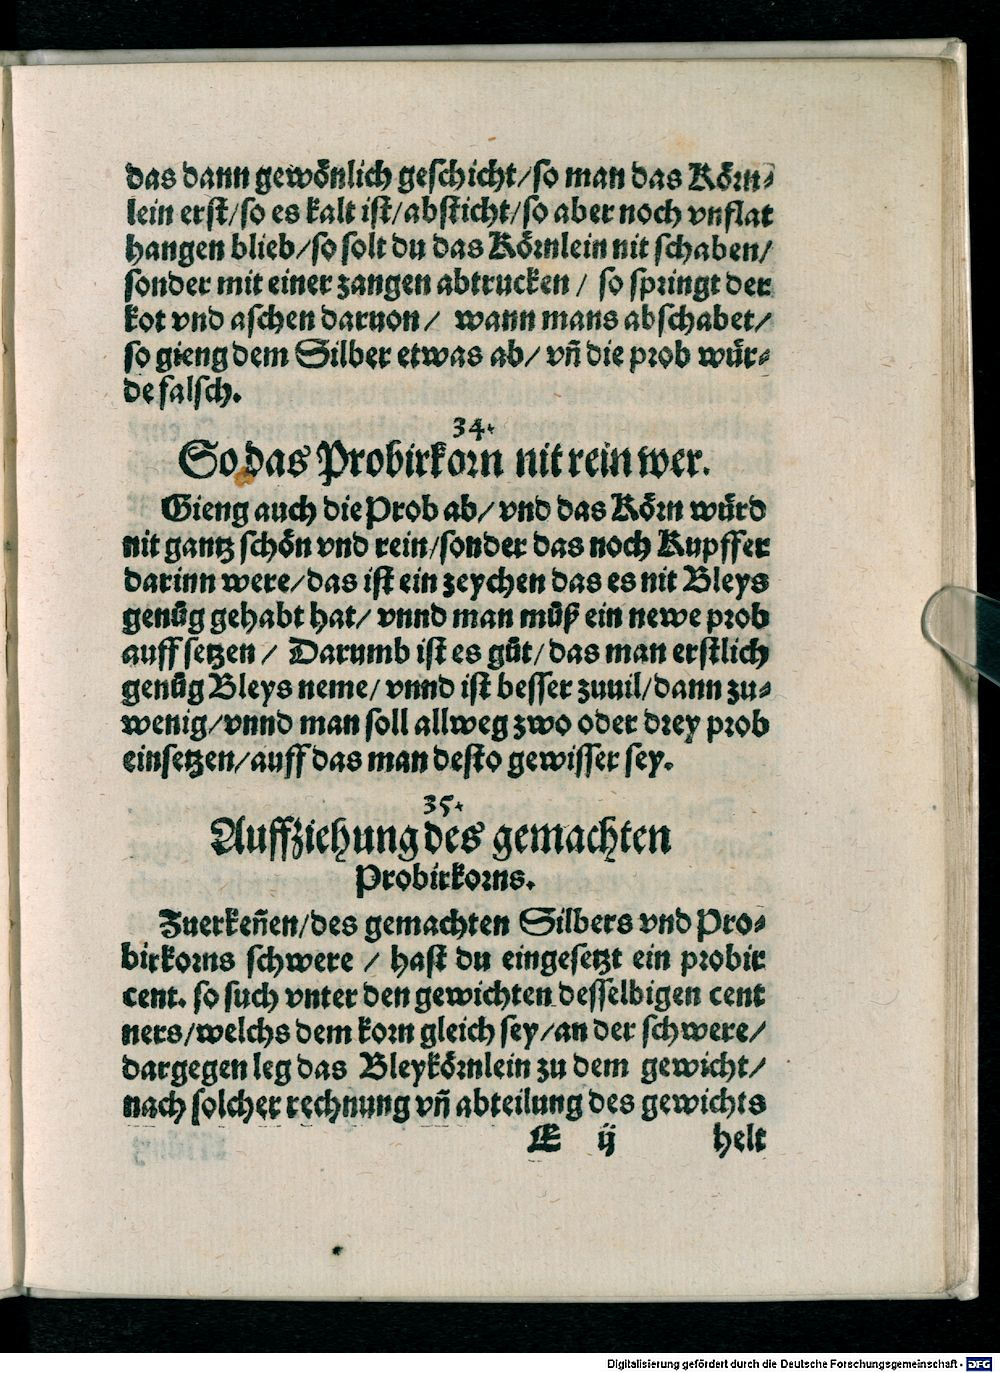 das dann gewönlich geschicht/so man das Körn-
lein erst/so es kalt ist/absticht/so aber noch vnflat
hangen blieb/so solt du das Körnlein nit schaben/
sonder mit einer zangen abtrucken / so springt der
kot vnd aschen daruon/ wann mans abschabet/
so gieng dem Silber etwas ab/ vñ die prob wür-
de falsch.
34.
So das Probirkorn nit rein wer.
Gieng auch die Prob ab/ vnd das Körn würd
nit gantz schön vnd rein/sonder das noch Kupffer
darinn were/das ist ein zeychen das es nit Bleys
genůg gehabt hat/ vnnd man můß ein newe prob
auff setzen / Darumb ist es gůt/das man erstlich
genůg Bleys neme/ vnnd ist besser zuuil/dann zu-
wenig/vnnd man soll allweg zwo oder drey prob
einsetzen/auff das man desto gewisser sey.
35.
Auffziehung des gemachten
Probirkorns.
Zuerkeñen/des gemachten Silbers vnd Pro-
birkorns schwere / hast du eingesetzt ein probir
cent. so such vnter den gewichten desselbigen cent
ners/welchs dem korn gleich sey/an der schwere/
dargegen leg das Bleykörnlein zu dem gewicht/
nach solcher rechnung vñ abteilung des gewichts
E ij helt
Digitalisierung gefördert durch die Deutsche Forschungsgemeinschaft - DFG